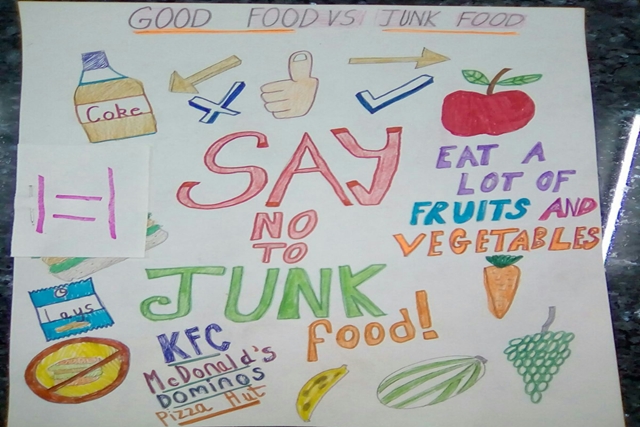 GOOD FOOD VS JUNK FOOD
Coke
SAY
NO
TO
JUNK
food!
EAT A
LOT OF
FRUITS AND
VEGETABLES
Lays
KFC
McDonald's
Dominos
Pizza Hut